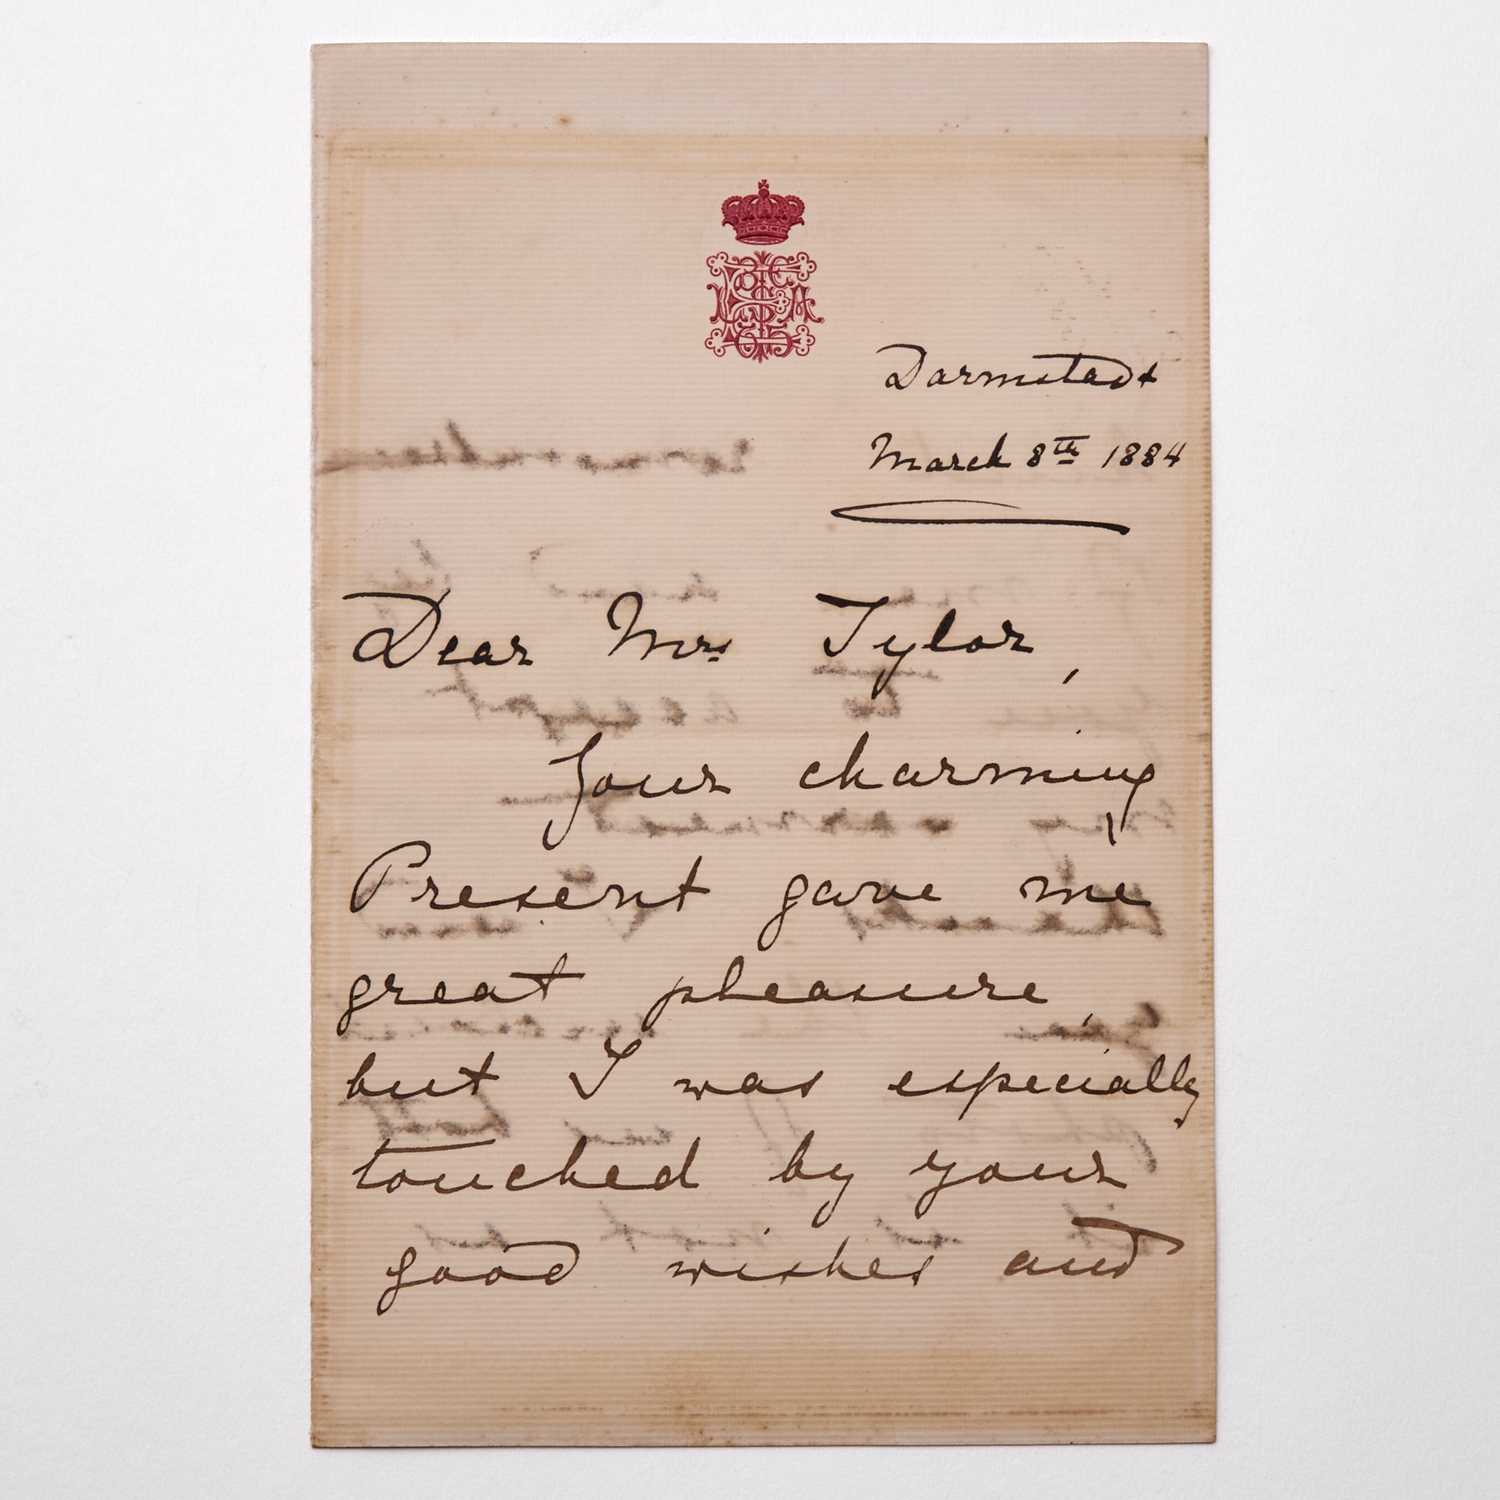 Darmstadt
March 8th 1884
Dear Mrs Tylor,
Your charming
Present gave me
great pleasure,
but I was especially
touched by your
good wishes and